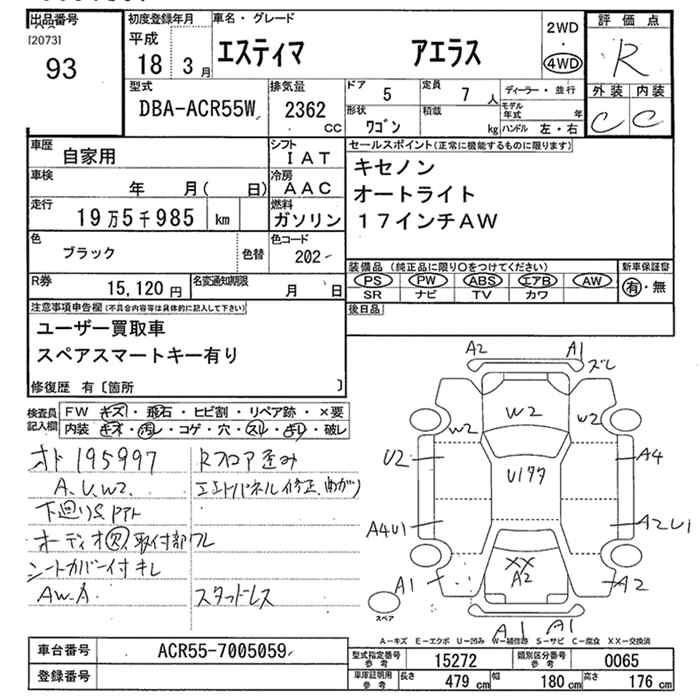 出品番号 初度登録年月 車名・グレード 評価点
[2073] 平成 エスティマ アエラス 2WD R
93 18 3月 4WD
型式 排気量 ドア 5 定員 7人 ディーラー・並行 外装 内装
DBA-ACR55W 2362 cc 形状 ワゴン 積載 kg モデル年式 年 C C
ハンドル 左・右
車歴 自家用 シフト IAT セールスポイント(正常に機能するものに限ります)
車検 年 月( 日) 冷房 AAC キセノン
走行 19万5千985 km 燃料 ガソリン オートライト
17インチAW
色 ブラック 色替 色コード 202-
装備品 (純正品に限り○をつけてください) 新車保証書
R券 15,120円 名変通知期限 月 日 PS PW ABS エアB AW 有・無
SR ナビ TV カワ
注意事項申告欄(不具合内容等は具体的に記入して下さい) 後日品
ユーザー買取車
スペアスマートキー有り
修復歴 有〔箇所 〕
検査員記入欄 FW キズ・飛石・ヒビ割・リペア跡・×要
内装 キズ・汚レ・コゲ・穴・スレ・ヨレ・破レ
オド 195997 Rフロア歪み
A.U.W2. エンドパネル修正、曲がり
下廻りS
オーディオ欠 取付部ワレ
シートカバー付 キレ
AW.A スタッドレス
A2 A1 ズレ
W2 W2 W2
U2 U1 A4
A4U1 A2U1
XX A2
A1 A2
スペア
A1 A1
A―キズ E―エクボ U―凹み W―補修跡 S―サビ C―腐食 XX―交換済
車台番号 ACR55-7005059- 型式指定番号 参考 15272 類別区分番号 参考 0065
登録番号 車庫証明用 参考 長さ 479cm 幅 180cm 高さ 176cm